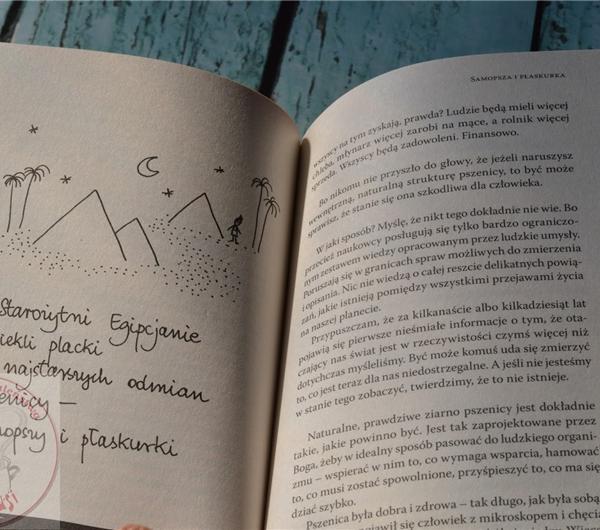 Starożytni Egipcjanie
piekli placki
najstarszych odmian
pszenicy —
samopszy i płaskurki
Samopsza i płaskurka
wszyscy na tym zyskają, prawda? Ludzie będą mieli więcej
chleba, młynarz więcej zarobi na mące, a rolnik więcej
sprzeda. Wszyscy będą zadowoleni. Finansowo.
Bo nikomu nie przyszło do głowy, że jeżeli naruszysz
wewnętrzną, naturalną strukturę pszenicy, to być może
sprawisz, że stanie się ona szkodliwa dla człowieka.
W jaki sposób? Myślę, że nikt tego dokładnie nie wie. Bo
przecież naukowcy posługują się tylko bardzo ograniczo-
nym zestawem wiedzy opracowanym przez ludzkie umysły.
Poruszają się w granicach spraw możliwych do zmierzenia
i opisania. Nic nie wiedzą o całej reszcie delikatnych powią-
zań, jakie istnieją pomiędzy wszystkimi przejawami życia
na naszej planecie.
Przypuszczam, że za kilkanaście albo kilkadziesiąt lat
pojawią się pierwsze nieśmiałe informacje o tym, że ota-
czający nas świat jest w rzeczywistości czymś więcej niż
dotychczas myśleliśmy. Być może komuś uda się zmierzyć
to, co jest teraz dla nas niedostrzegalne. A jeśli nie jesteśmy
w stanie tego zobaczyć, twierdzimy, że to nie istnieje.
Naturalne, prawdziwe ziarno pszenicy jest dokładnie
takie, jakie powinno być. Jest tak zaprojektowane przez
Boga, żeby w idealny sposób pasować do ludzkiego organi-
zmu – wspierać w nim to, co wymaga wsparcia, hamować
to, co musi zostać spowolnione, przyśpieszyć to, co ma się
dziać szybko.
Pszenica była dobra i zdrowa – tak długo, jak była sobą
pojawił się człowiek z mikroskopem i chęcią